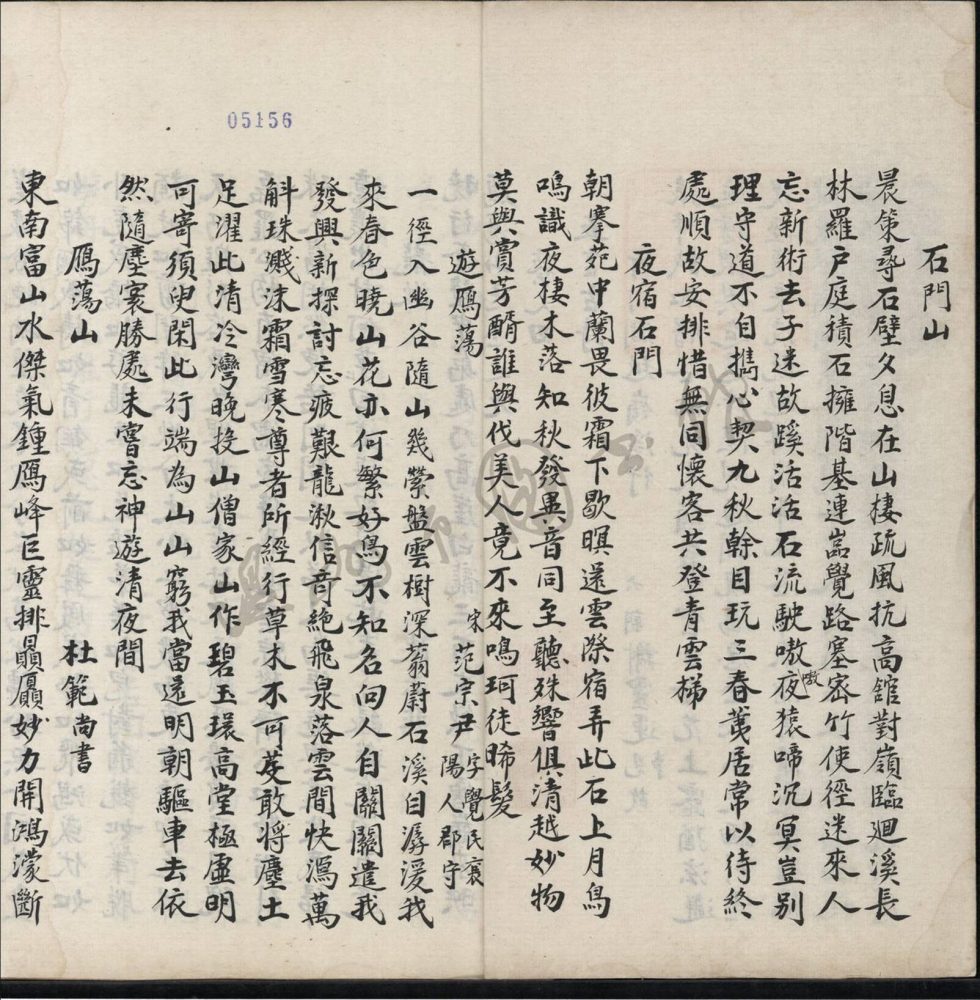 05156
石門山
晨策尋石壁夕息在山棲疏風抗高館對嶺臨迴溪長
林羅戶庭積石擁階基連嵓覺路塞密竹使徑迷來人
忘新術去子迷故蹊活活石流駛嗷嗷夜猿啼沉冥豈別
理守道不自擕心契九秋榦目玩三春荑居常以待終
處順故安排惜無同懷客共登青雲梯
夜宿石門
朝搴苑中蘭畏彼霜下歇暝還雲際宿弄此石上月鳥
鳴識夜棲木落知秋發異音同至聽殊響俱清越妙物
莫與賞芳醑誰與伐美人竟不來鳴珂徒晞髮
遊鴈蕩 宋 范宗尹 字覺民襄陽人郡守
一徑入幽谷隨山幾縈盤雲樹深蓊蔚石溪自潺湲我
來春色曉山花亦何繁好鳥不知名向人自關關遣我
發興新探討忘疲艱龍湫信奇絕飛泉落雲間快瀉萬
斛珠濺沫霜雪寒尊者所經行草木不可芟敢將塵土
足濯此清冷灣晚投山僧家山作碧玉環高堂極虛明
可寄須臾閑此行端為山山窮我當還明朝驅車去依
然隨塵寰勝處未嘗忘神遊清夜間
鴈蕩山 杜範尚書
東南富山水傑氣鍾鴈峰巨靈排贔屭妙力開鴻濛斷